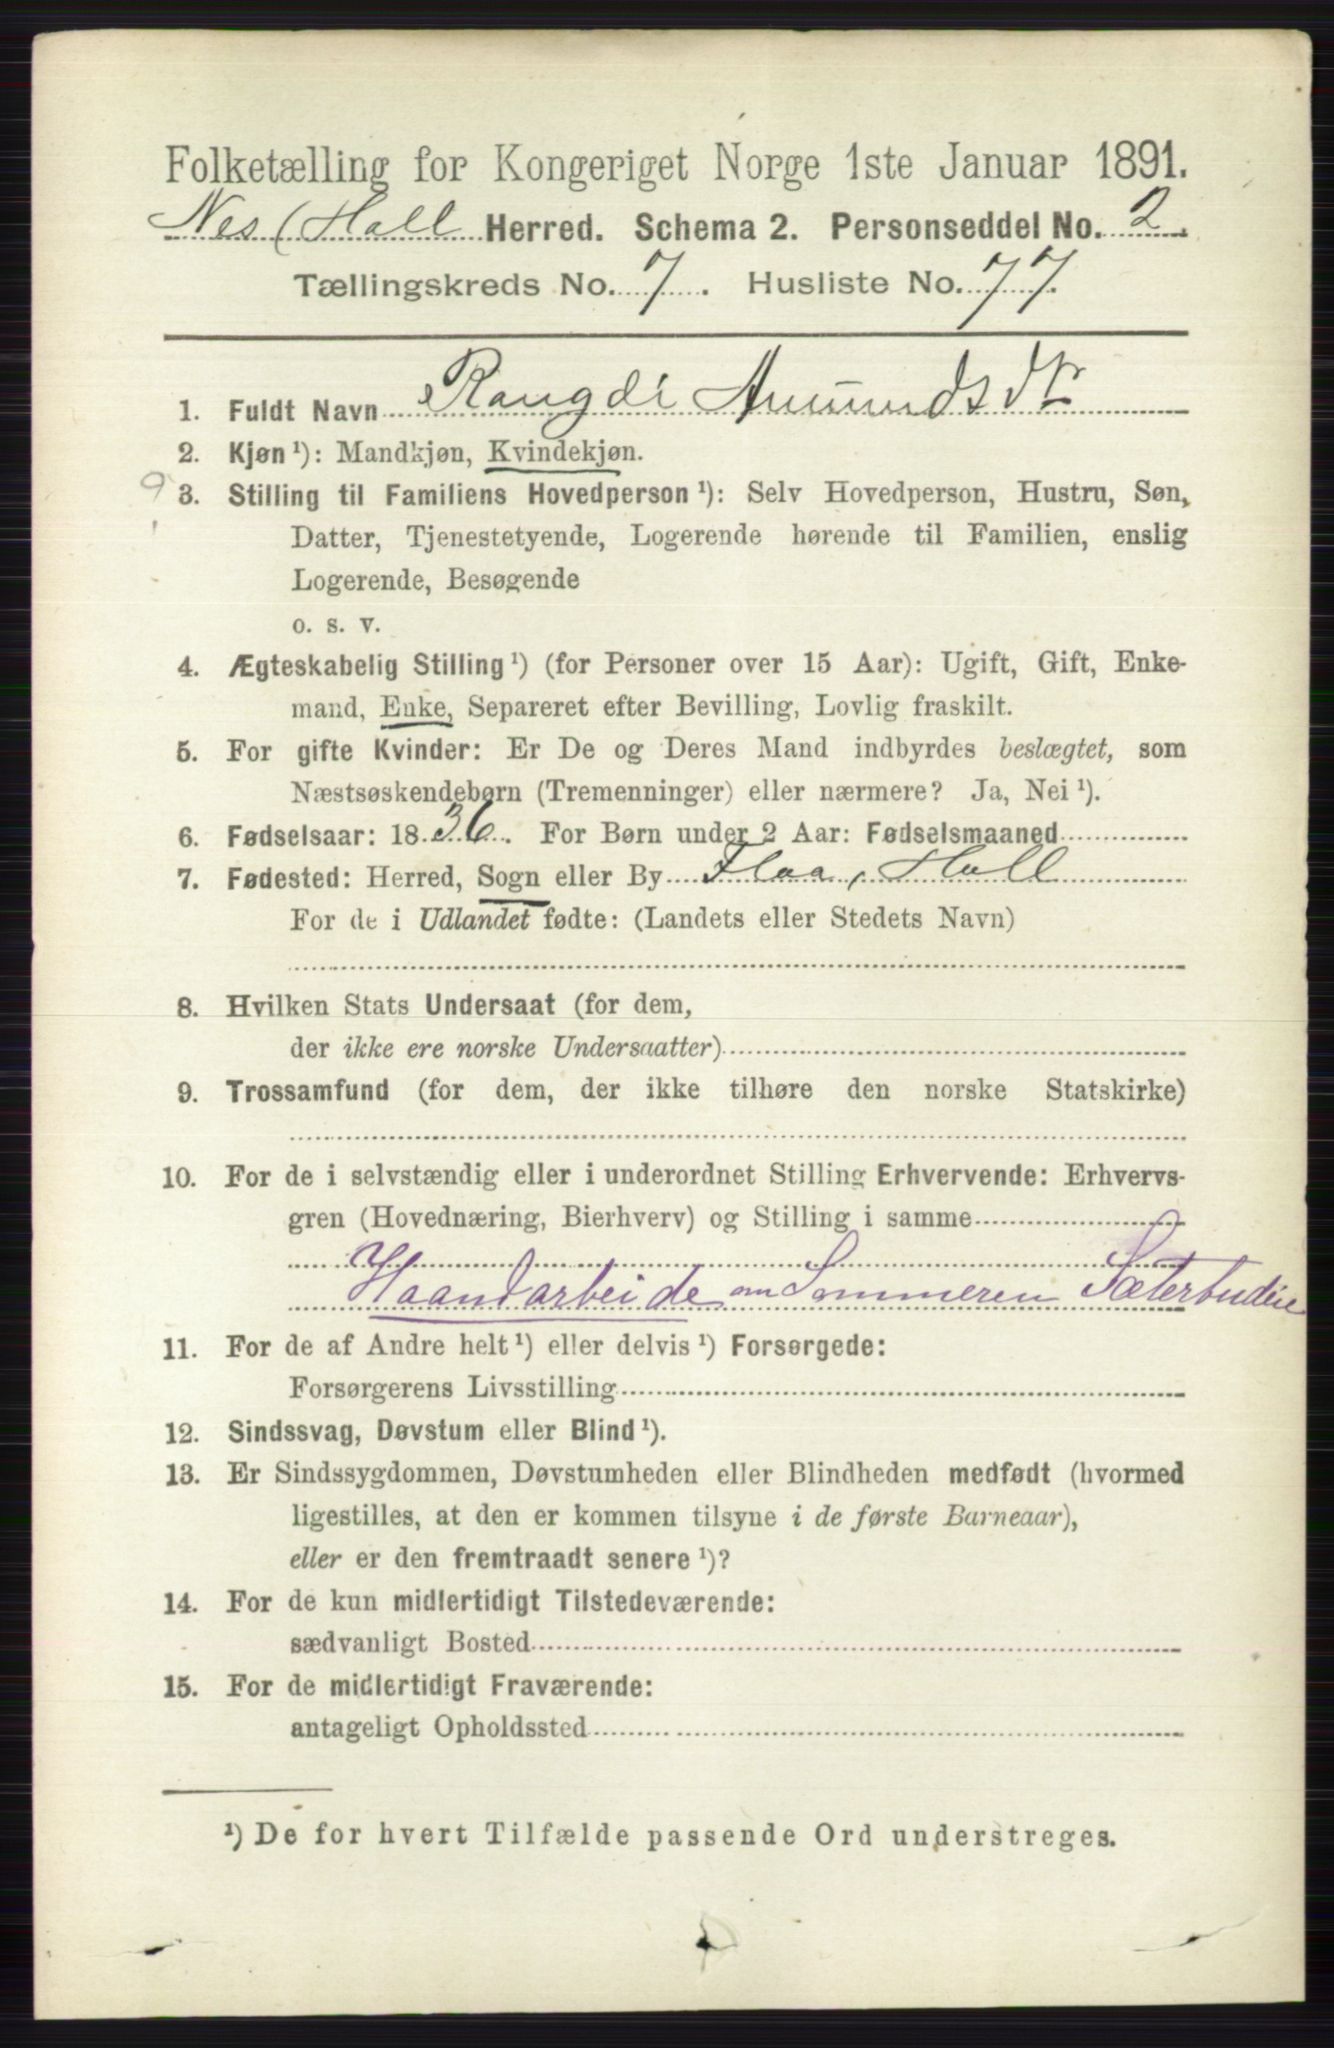 Folketælling for Kongeriget Norge 1ste Januar 1891.
Nes (Hall Herred. Schema 2. Personseddel No. 2.
Tællingskreds No. 7. Husliste No. 77.
1. Fuldt Navn Rangdi Amundsdtr
2. Kjøn ¹): Mandkjøn, Kvindekjøn.
3. Stilling til Familiens Hovedperson ¹): Selv Hovedperson, Hustru, Søn,
Datter, Tjenestetyende, Logerende hørende til Familien, enslig
Logerende, Besøgende
o. s. v.
4. Ægteskabelig Stilling ¹) (for Personer over 15 Aar): Ugift, Gift, Enke-
mand, Enke, Separeret efter Bevilling, Lovlig fraskilt.
5. For gifte Kvinder: Er De og Deres Mand indbyrdes beslægtet, som
Næstsøskendebørn (Tremenninger) eller nærmere? Ja, Nei ¹).
6. Fødselsaar: 1836. For Børn under 2 Aar: Fødselsmaaned
7. Fødested: Herred, Sogn eller By Flaa, Hall
For de i Udlandet fødte: (Landets eller Stedets Navn)
8. Hvilken Stats Undersaat (for dem,
der ikke ere norske Undersaatter)
9. Trossamfund (for dem, der ikke tilhøre den norske Statskirke)
10. For de i selvstændig eller i underordnet Stilling Erhvervende: Erhvervs-
gren (Hovednæring, Bierhverv) og Stilling i samme
Haandarbeide om Sommeren Sæterbudeie
11. For de af Andre helt ¹) eller delvis ¹) Forsørgede:
Forsørgerens Livsstilling
12. Sindssvag, Døvstum eller Blind ¹).
13. Er Sindssygdommen, Døvstumheden eller Blindheden medfødt (hvormed
ligestilles, at den er kommen tilsyne i de første Barneaar),
eller er den fremtraadt senere ¹)?
14. For de kun midlertidigt Tilstedeværende:
sædvanligt Bosted
15. For de midlertidigt Fraværende:
antageligt Opholdssted
¹) De for hvert Tilfælde passende Ord understreges.